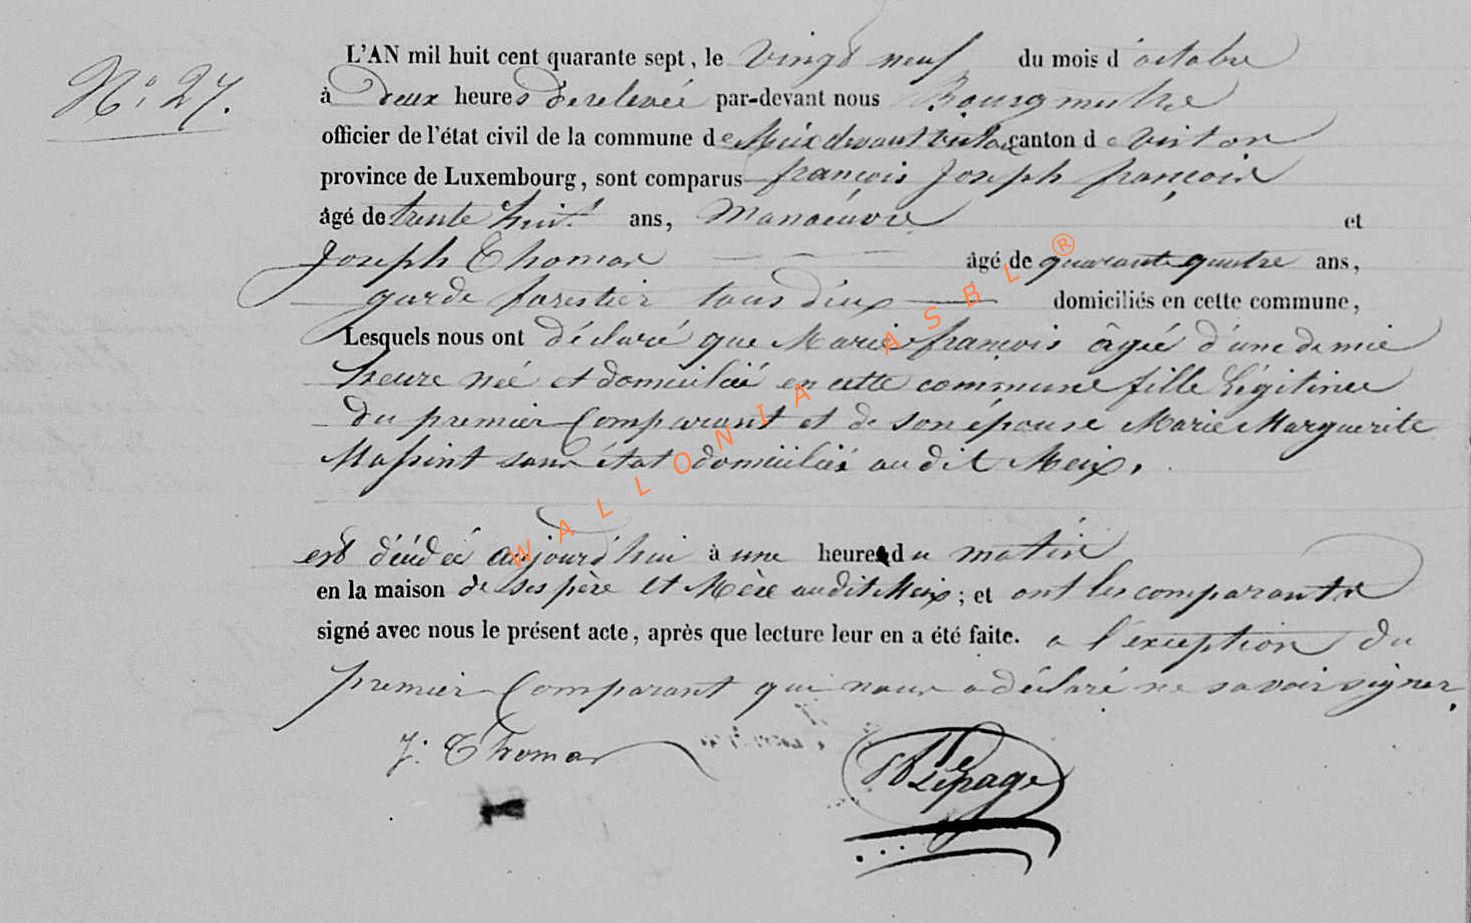 N° 27.
L'AN mil huit cent quarante sept, le vingt neuf du mois d'octobre
à deux heures de relevée par-devant nous Bourgmestre
officier de l'état civil de la commune de Meix devant virton canton de virton
province de Luxembourg, sont comparus françois Joseph françois
âgé de trente huit ans, Manoeuvre et
Joseph Thomas âgé de quarante quatre ans,
garde forestier tous deux domiciliés en cette commune,
Lesquels nous ont déclaré que Marie françois âgée d'une demie
heure née et domiciliée en cette commune fille légitime
du premier Comparant et de son épouse Marie Marguerite
Massint sans état domiciliés audit Meix,
est décédée aujourd'hui à une heure du matin
en la maison de ses père et Mère audit Meix; et ont les comparants
signé avec nous le présent acte, après que lecture leur en a été faite. a l'exception du
premier Comparant qui nous a déclaré ne savoir signer.
J: Thomas
Lepage
WALLONIA ASBL ®